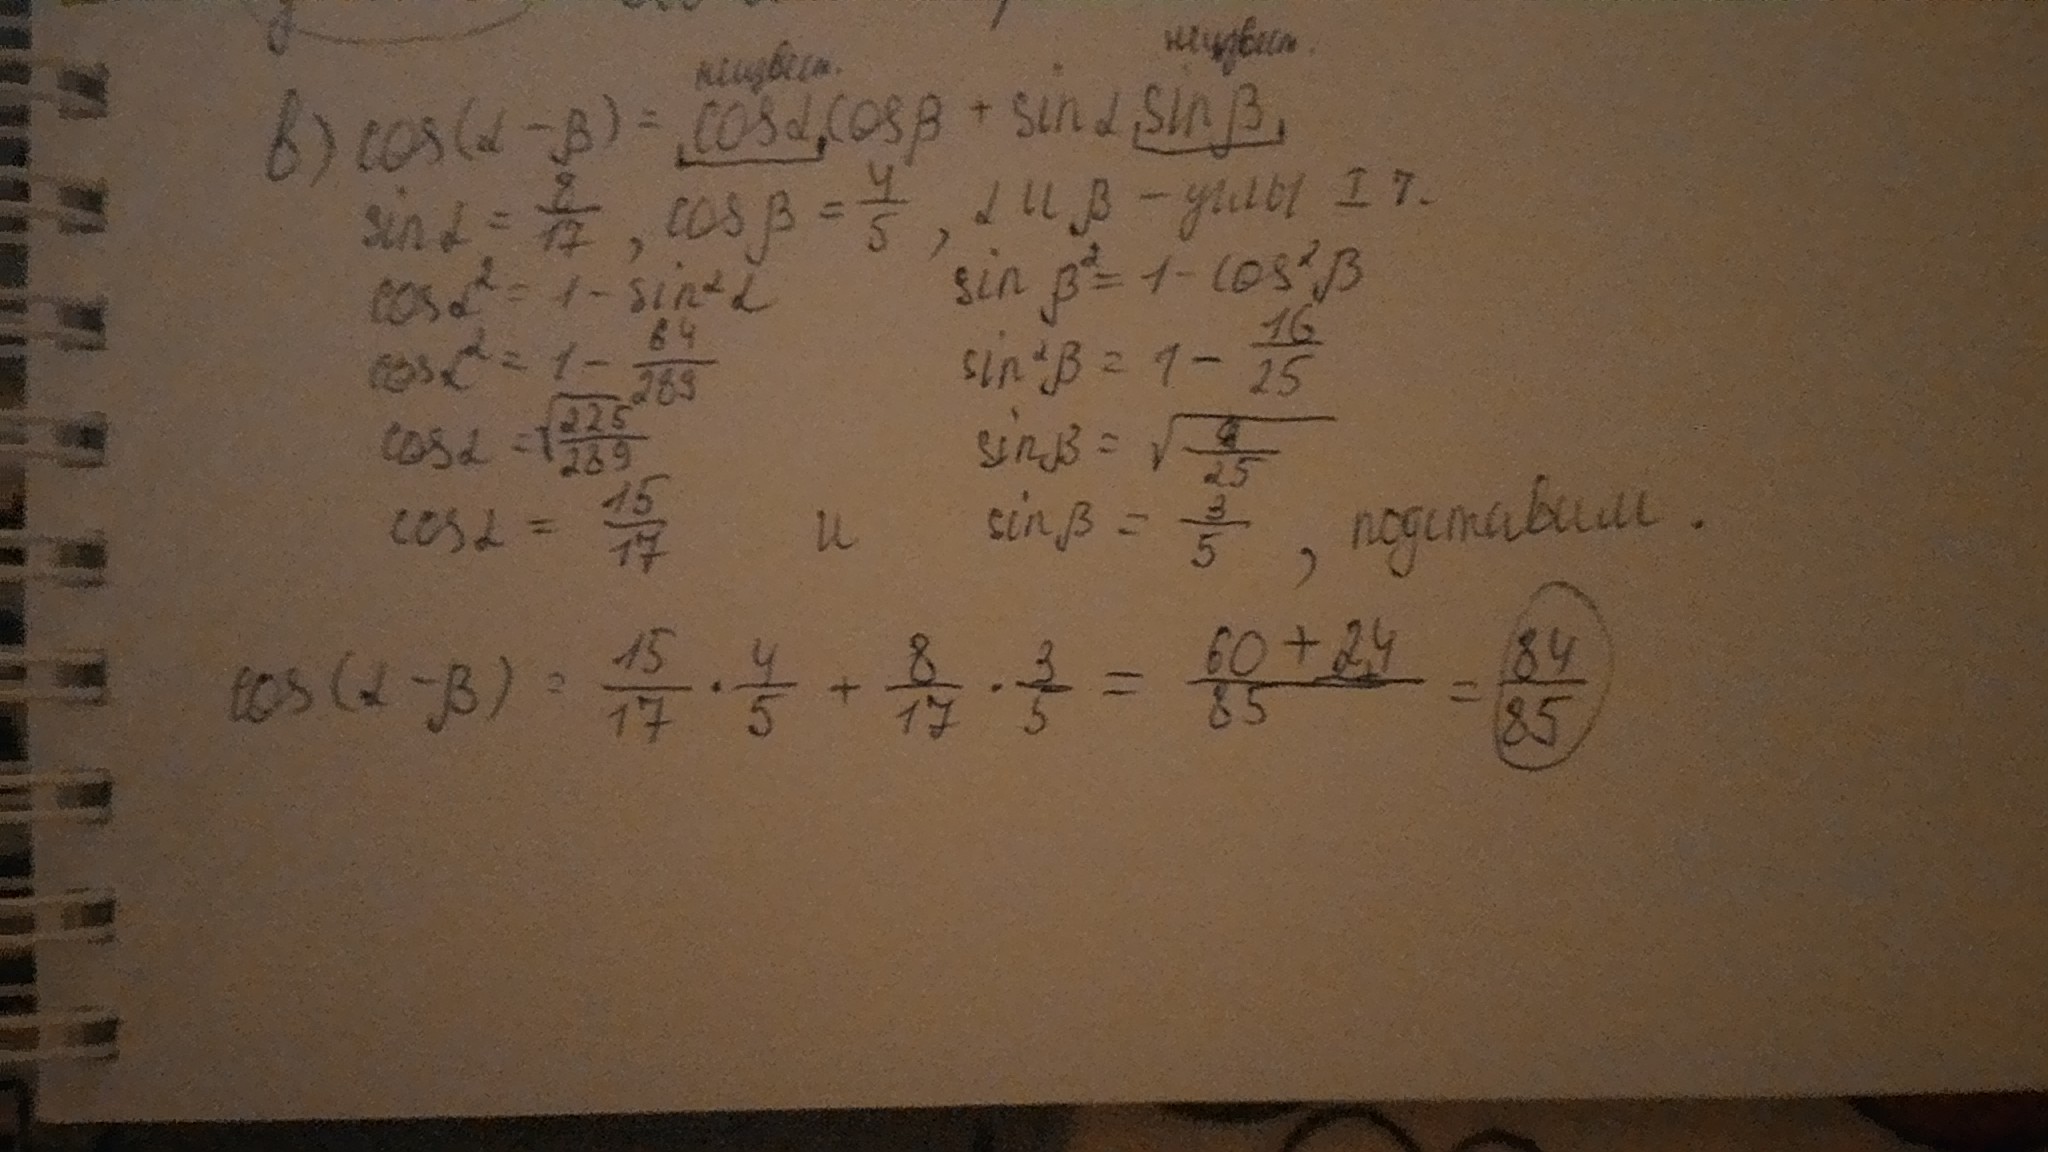 неизвест. неизвест.
в) cos(α - β) = cosα cosβ + sinα sinβ
sinα = 8/17, cosβ = 4/5, α и β - углы I ч.
cosα² = 1 - sin²α sinβ² = 1 - cos²β
cosα² = 1 - 64/289 sin²β = 1 - 16/25
cosα = √225/289 sinβ = √9/25
cosα = 15/17 и sinβ = 3/5, подставим.
cos(α - β) = 15/17 · 4/5 + 8/17 · 3/5 = 60 + 24/85 = 84/85